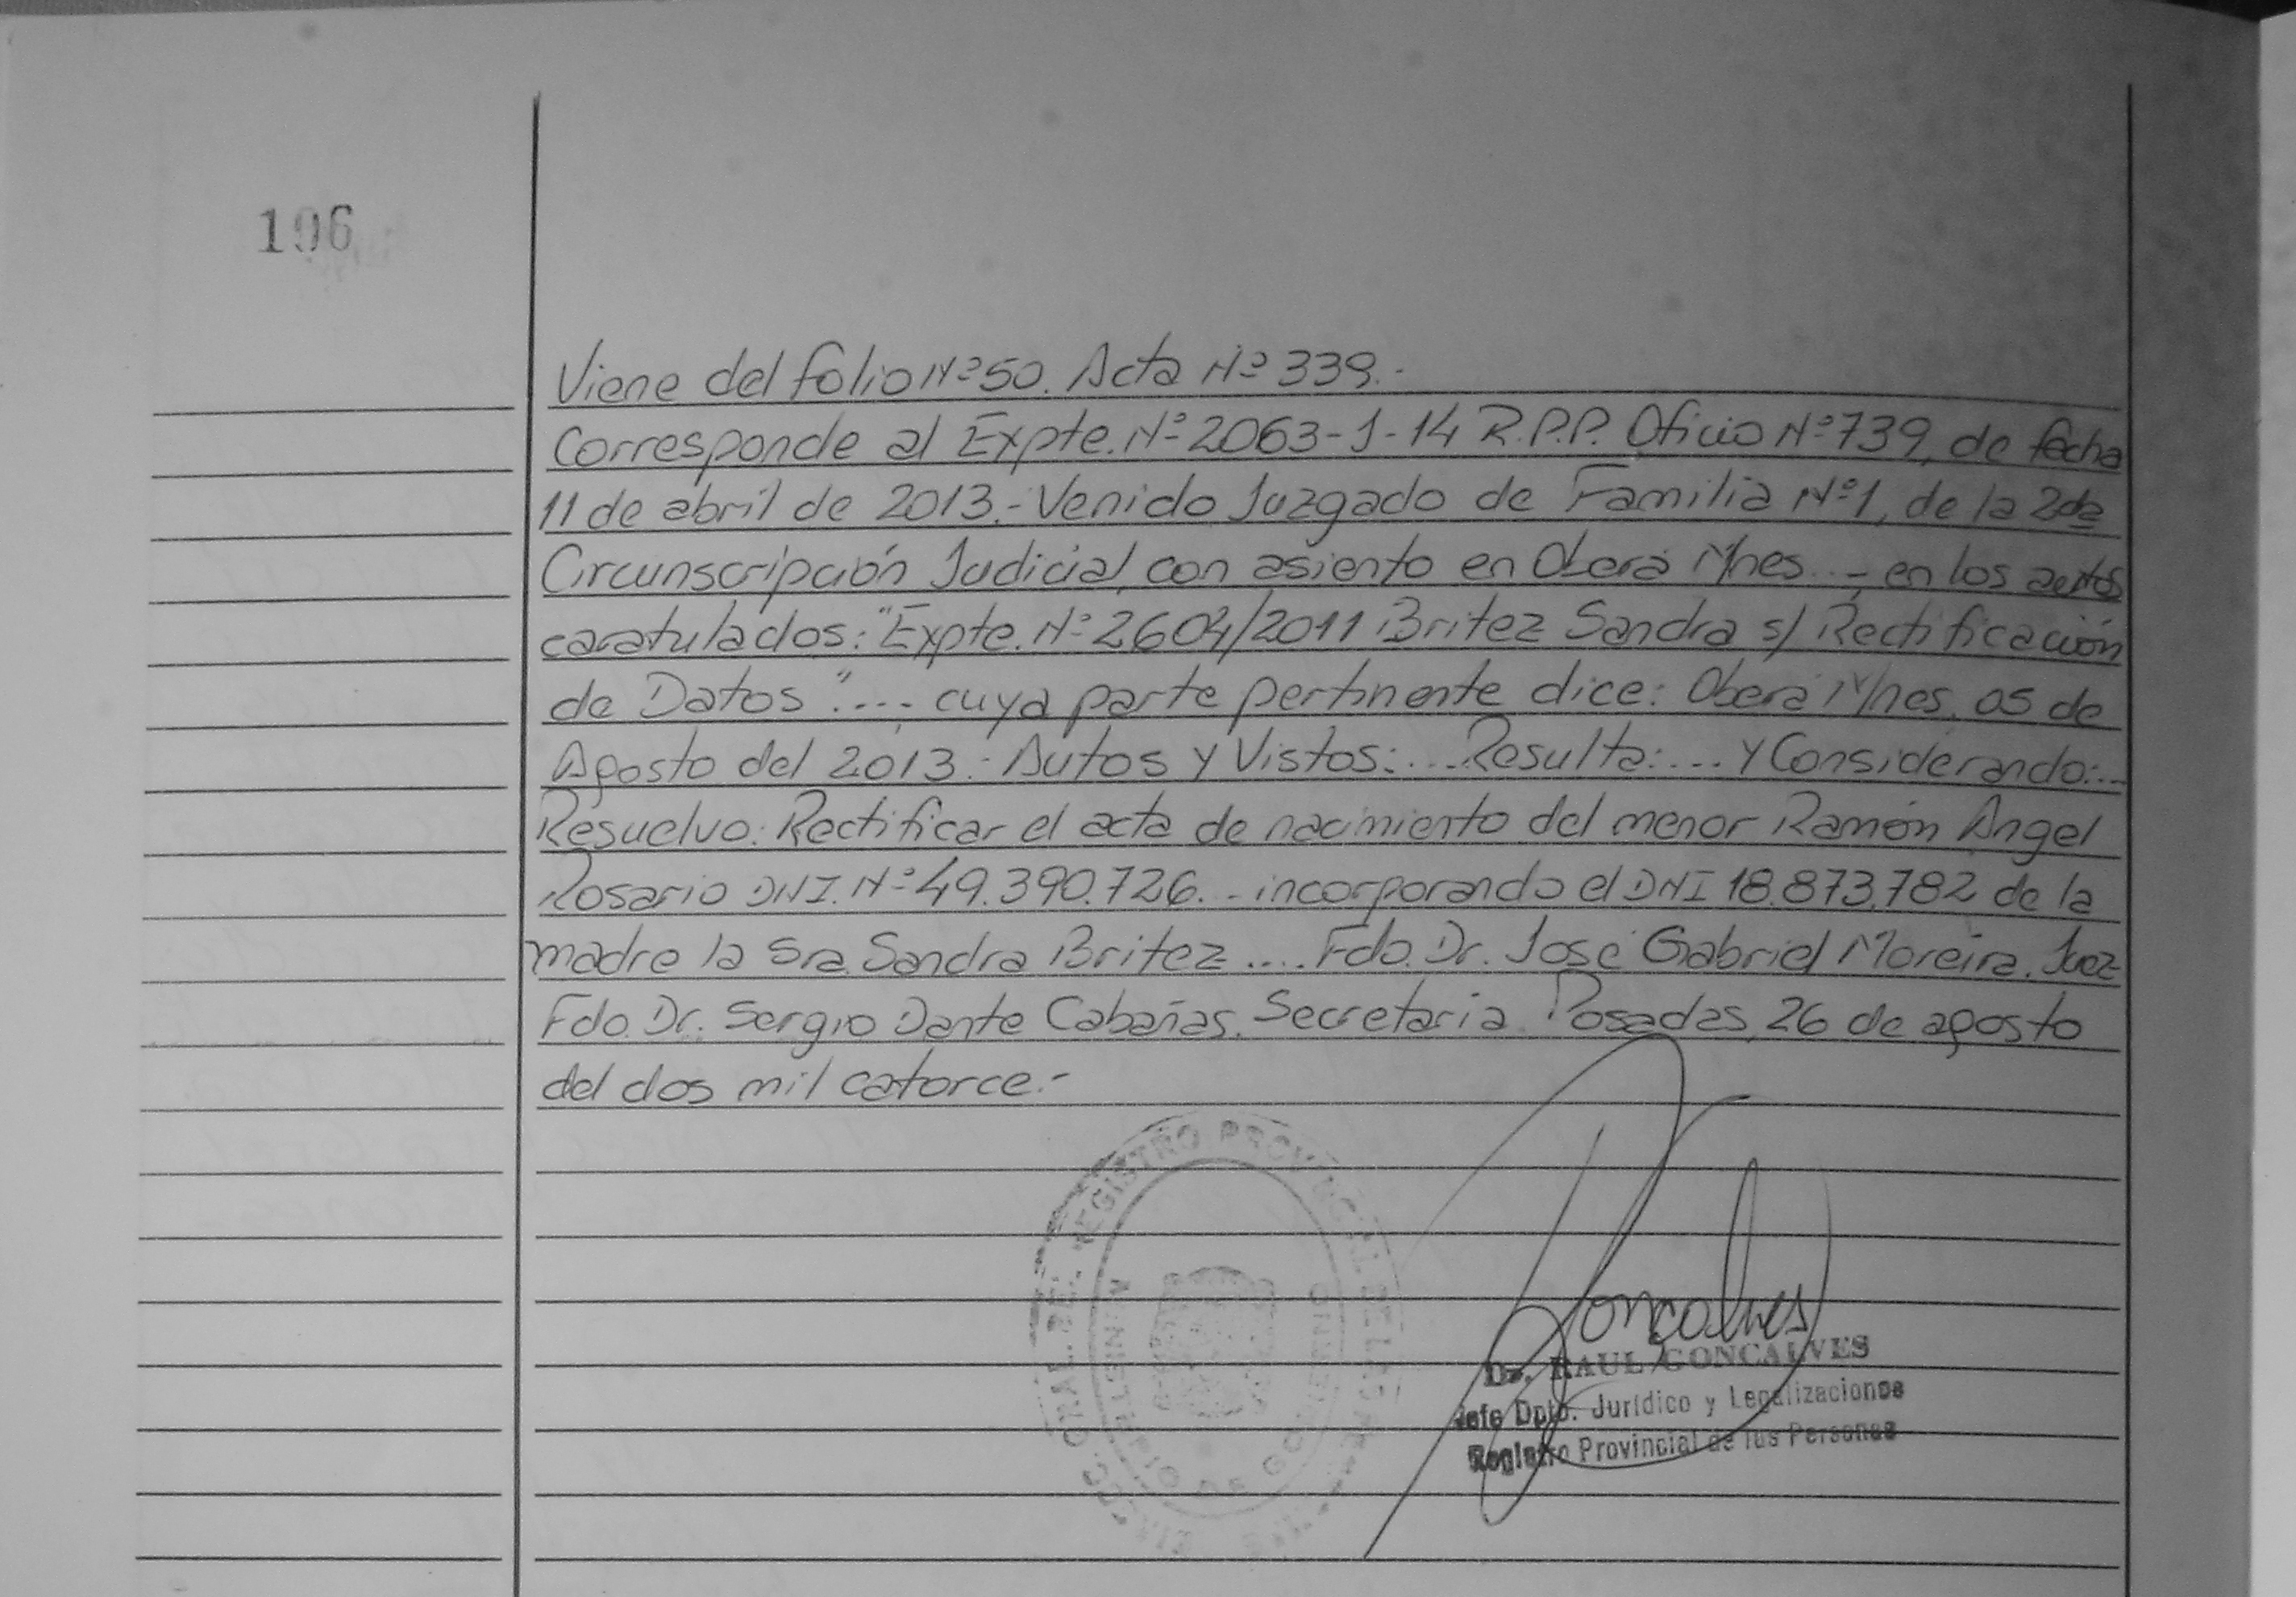 106
Viene del folio Nº 50. Acta Nº 339.-
Corresponde al Expte. Nº 2063-J-14 R.P.P. Oficio Nº 739, de fecha
11 de abril de 2013.- Venido Juzgado de Familia Nº 1, de la 2da
Circunscripción Judicial, con asiento en Oberá Mnes...- en los autos
caratulados: "Expte. Nº 2604/2011 Britez Sandra s/ Rectificación
de Datos".... cuya parte pertinente dice: Oberá Mnes, 05 de
Agosto del 2013.- Autos y Vistos:... Resulta:.... y Considerando:...
Resuelvo: Rectificar el acta de nacimiento del menor Ramón Angel
Rosario DNI. Nº 49.390.726.- incorporando el DNI 18.873.782 de la
madre la Sra. Sandra Britez .... Fdo. Dr. José Gabriel Moreira. Juez
Fdo. Dr. Sergio Dante Cabañas. Secretaria. Posadas, 26 de agosto
del dos mil catorce.-
REGISTRO PROVINCIAL DE LAS
MINISTERIO DE GOBIERNO
Goncalves
Dr. RAUL GONCALVES
Jefe Dpto. Jurídico y Legalizaciones
Registro Provincial de las Personas